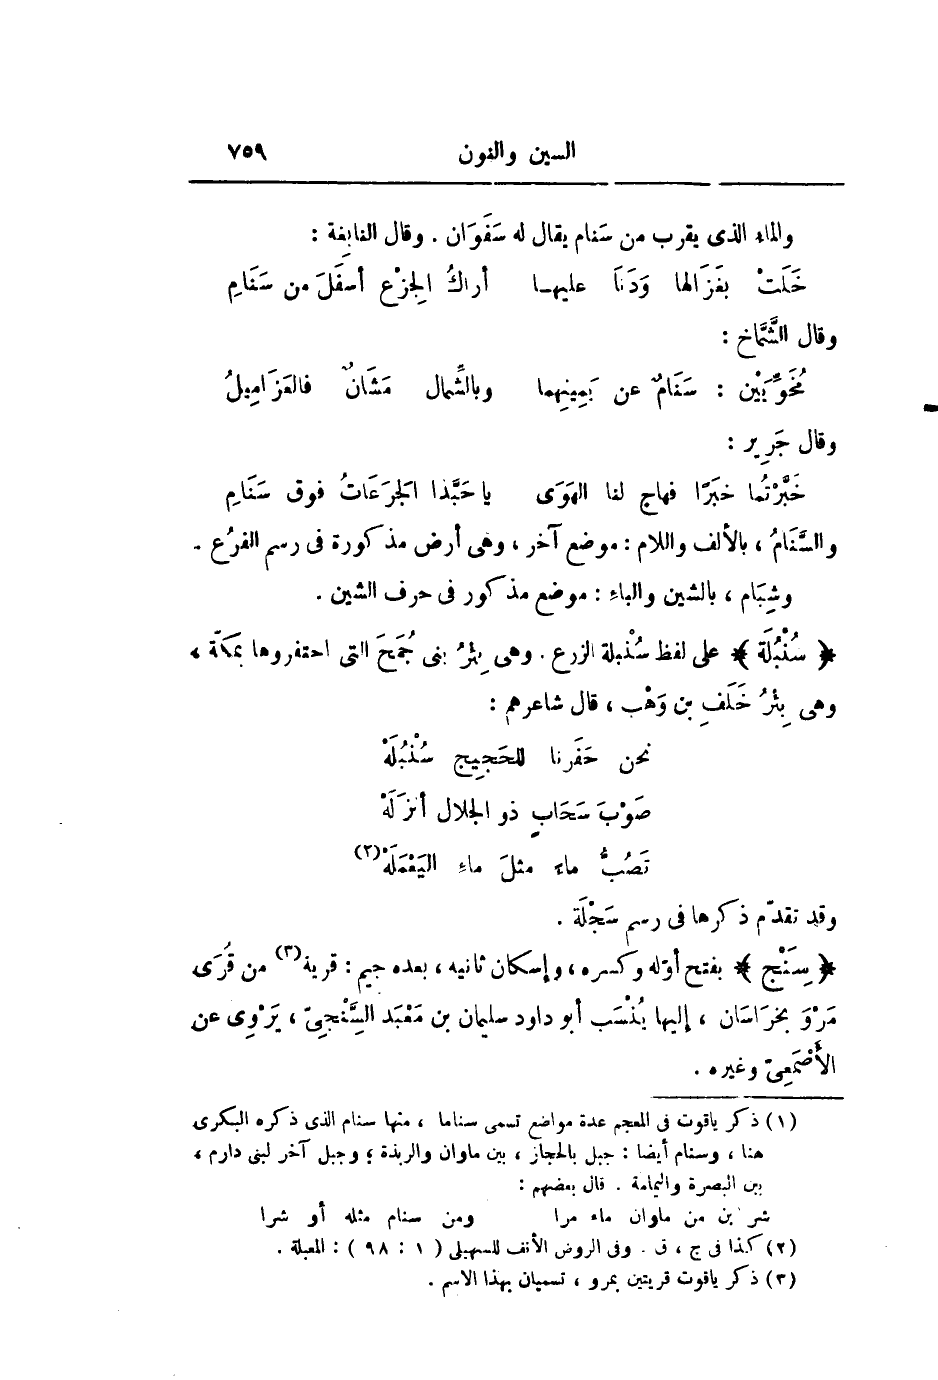 السين والنون ٧٥٩
والماء الذى يقرب من سَنام يقال له سَفَوَان . وقال النابِغة :
خَلَتْ بغَزَالها وَدَنَا عليهـا أراكُ الجِزْع أسفَلَ من سَنَامِ
وقال الشَّمَّاخ :
مُخَوِّيَيْن : سَنَامٌ عن يَمِينِهما وبالشِّمال مَشَانٌ فالعَزَامِيلُ
وقال جَرِير :
خَبَّرْتُما خبَرًا فهاج لنا الهَوَى يا حَبَّذا الجَرَعَاتُ فوق سَنَامِ
والسَّنَامُ ، بالألف واللام : موضع آخر ، وهى أرض مذكورة فى رسم الفرُع .
وشِبَام ، بالشين والباءِ : موضع مذكور فى حرف الشين .
﴿ سُنْبُلَة ﴾ على لفظ سُنْبلة الزرع . وهى بِئرُ بنى جُمَحَ التى احتفروها بمَكّة ،
وهى بِئرُ خَلَفِ بن وَهْب ، قال شاعرهم :
نحن حَفَرنا للحَجِيج سُنْبُلَهْ
صَوْبَ سَحَابٍ ذو الجلال أنزَلَهْ
تَصُبُّ ماءً مثلَ ماءِ اليَعْمَلَهْ(٢)
وقد تقدّم ذكرها فى رسم سَجْلَة .
﴿ سِنْج ﴾ بفتح أوّله وكسره ، وإسكان ثانيه ، بعده جيم : قرية(٣) من قُرَى
مَرْوَ بخرَاسَان ، إليها يُنْسَب أبو داود سليمان بن مَعْبَد السِّنْجىّ ، يَرْوِى عن
الأَصْمَعِىّ وغيره .
(١) ذكر ياقوت فى المعجم عدة مواضع تسمى سناما ، منها سنام الذى ذكره البكرى
هنا ، وسنام أيضا : جبل بالحجاز ، بين ماوان والربذة ؛ وجبل آخر لبنى دارم ،
بين البصرة واليمامة . قال بعضهم :
شربن من ماوان ماء مرا ومن سنام مثله أو شرا
(٢) كذا فى ج ، ق . وفى الروض الأنف للسهيلى ( ١ : ٩٨ ) : المعبلة .
(٣) ذكر ياقوت قريتين بمرو ، تسميان بهذا الاسم .